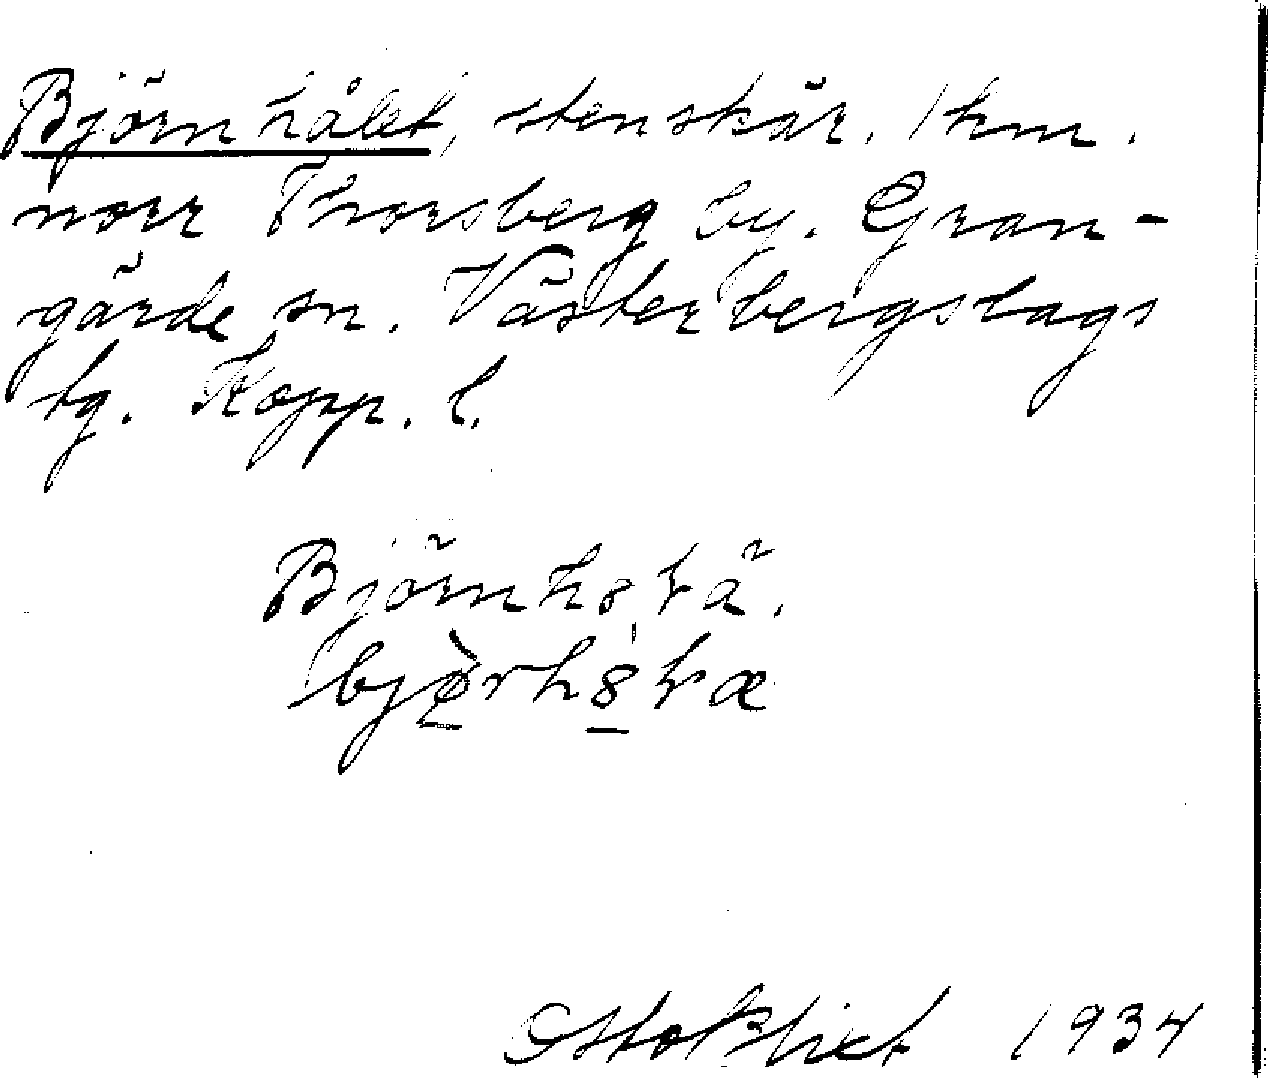 Björnhålet, stenskär. 1 km.
norr Thorsberg by. Gran-
gärde sn. Västerbergslags
tg. Kopp. l.
Björnh
bj
Otto Blixt 1934